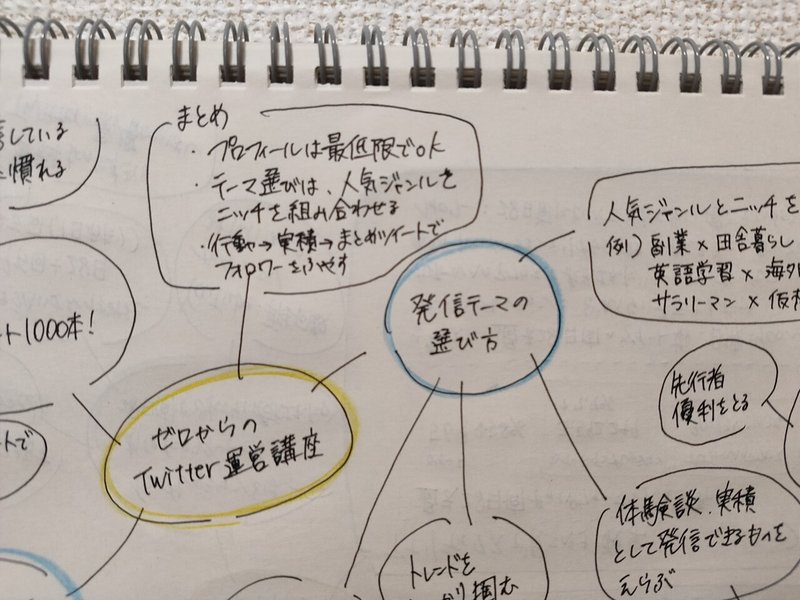 している
慣れる
まとめ
・プロフィールは最低限でok
・テーマ選びは、人気ジャンルと
ニッチを組み合わせる
・行動→実積→まとめツイートで
フォロワーをふやす
人気ジャンルとニッチを
例）副業×田舎暮らし
英語学習×海外
サラリーマン×仮想
発信テーマの
選び方
ト1000本！
ゼロからの
Twitter運営講座
トで
先行者
優利をとる
体験談、実積
として発信できるものを
えらぶ
トレンドを
掴む